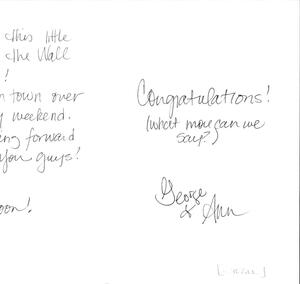 this little
the Wall
!
town over
weekend.
ing forward
you guys!
oon!
Congratulations!
(what more can we
say?)
George
& Ann